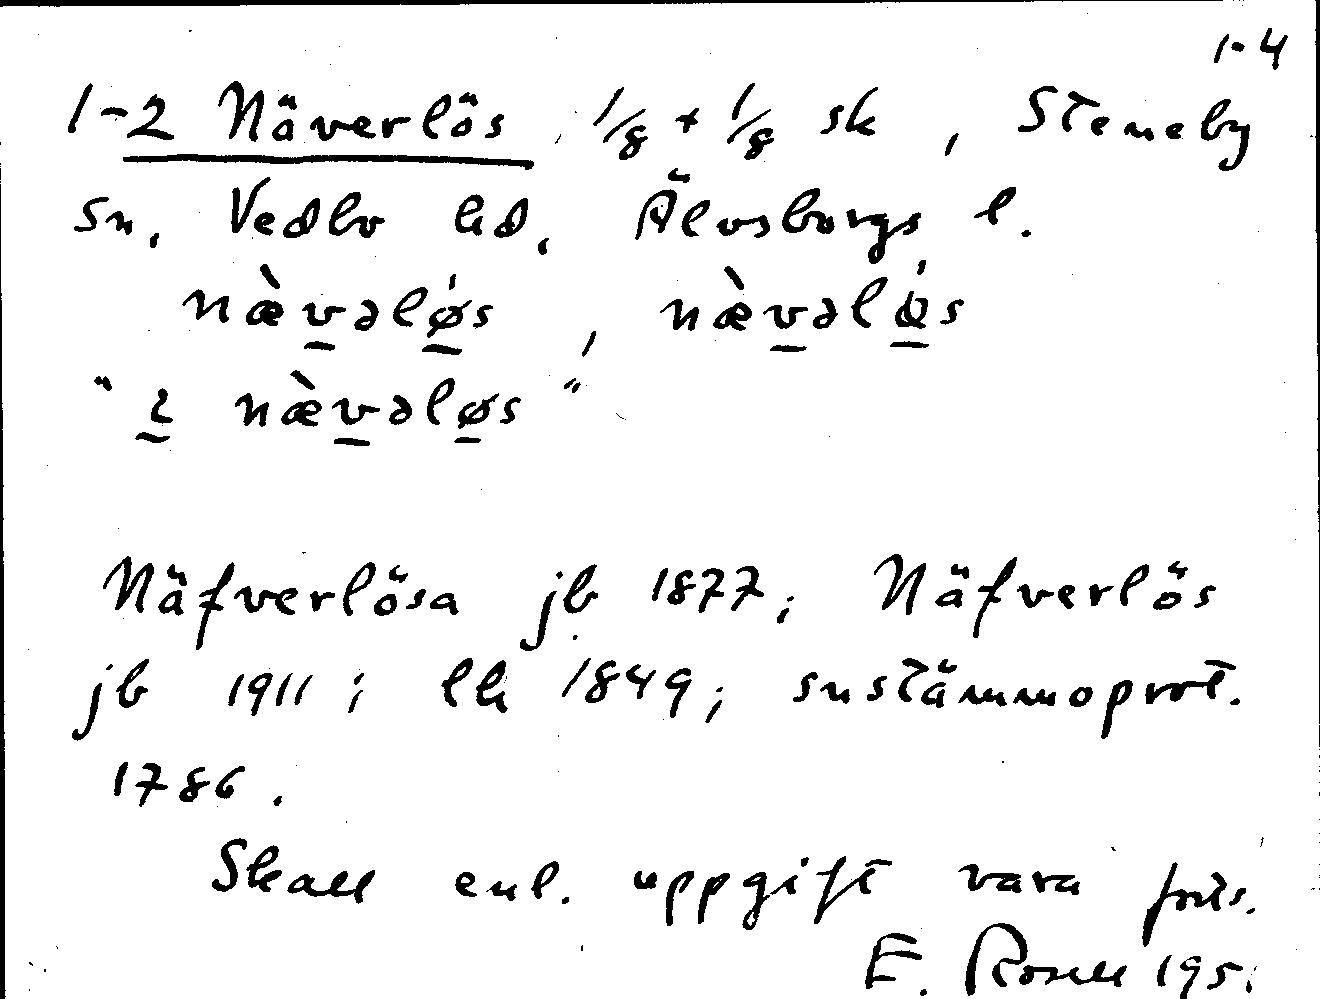 1-4
1-2 Näverlös, 1/8 + 1/8 sk, Steneby
sn, Vedbo hd, Älvsborgs l.
næ̀vəlǿs, næ̀vəlø̀s
"i næ̀vələs"
Näfverlösa jb 1877; Näfverlös
jb 1911; lh 1849; snstämmoprot.
1786.
Skall enl. uppgift vara forts.
E. Rosell 195.